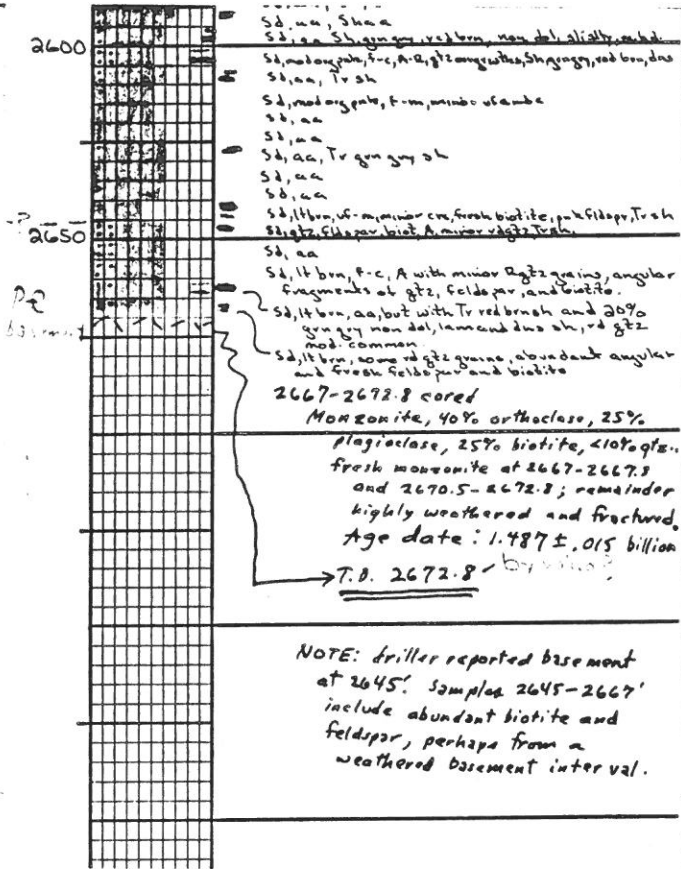 Sd, aa, Sh aa
2600
Sd, aa Sh, grn gry, red brn, non dol, slislty, mbd.
Sd, mod org pnk, f-c, A-R, qtz ovgrowths, Sh grngry, red brn, dns
Sd, aa, Tr sh
Sd, mod org pnk, f-m, minor
Sd, aa
Sd, aa
Sd, aa, Tr grn gry sh
Sd, aa
Sd, aa
Sd, lt brn, vf-m, minor crs, fresh biotite, pnk fldspr, Tr sh
-?
2650
Sd, qtz, fldspar, biot, A, minor rd qtz Tr sh.
Sd, aa
Sd, lt brn, f-c, A with minor R qtz grains, angular
fragments of qtz, feldspar, and biotite.
Sd, lt brn, aa, but with Tr red brn sh and 20%
grn gry non dol, lam and dns sh, rd qtz
mod. common.
Sd, lt brn, some rd qtz grains, abundant angular
and fresh feldspar and biotite
P-Є
basement
2667-2672.8 cored
Monzonite, 40% orthoclase, 25%
plagioclase, 25% biotite, <10% qtz..
fresh monzonite at 2667-2667.8
and 2670.5-2672.8; remainder
highly weathered and fractured.
Age date: 1.487 ± .015 billion
T.D. 2672.8
NOTE: driller reported basement
at 2645'. Samples 2645-2667'
include abundant biotite and
feldspar, perhaps from a
weathered basement interval.